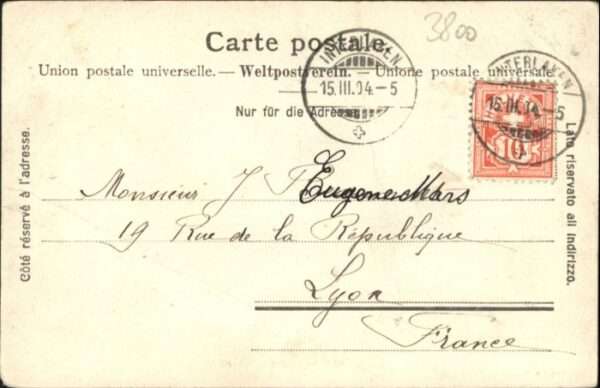 3800
Carte postale.
INTERLAKEN
15.III.04.-5
INTERLAKEN
15.III.04.-5
Union postale universelle. — Weltpostverein. — Unione postale universale
Nur für die Adresse
HELVETIA
10
Côté réservé à l'adresse.
Lato riservato all indirizzo.
Monsieur J Eugene Mars
19 Rue de la République
Lyon
France